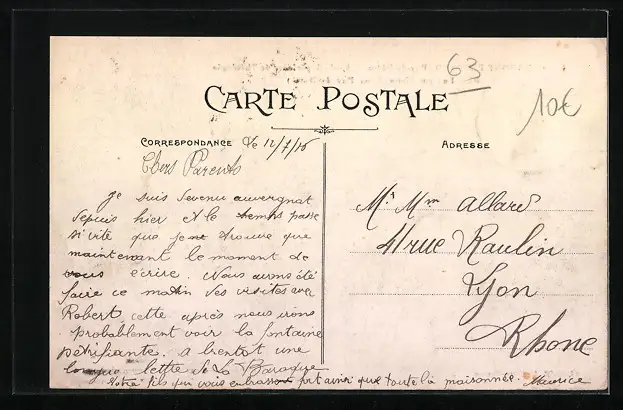 63
10€
CARTE POSTALE
CORRESPONDANCE
le 12/7/16
ADRESSE
Chers Parents
Je suis devenu auvergnat
depuis hier et le temps passe
si vite que je ne trouve que
maintenant le moment de
vous écrire. Nous avons été
faire ce matin des visites avec
Robert cette après nous irons
probablement voir la fontaine
pétrifiante. a bientot une
longue lettre de La
Votre fils qui vous embrasse fort ainsi que toute la maisonnée. Maurice
Mr Mme Allard
41 rue Raulin
Lyon
Rhone